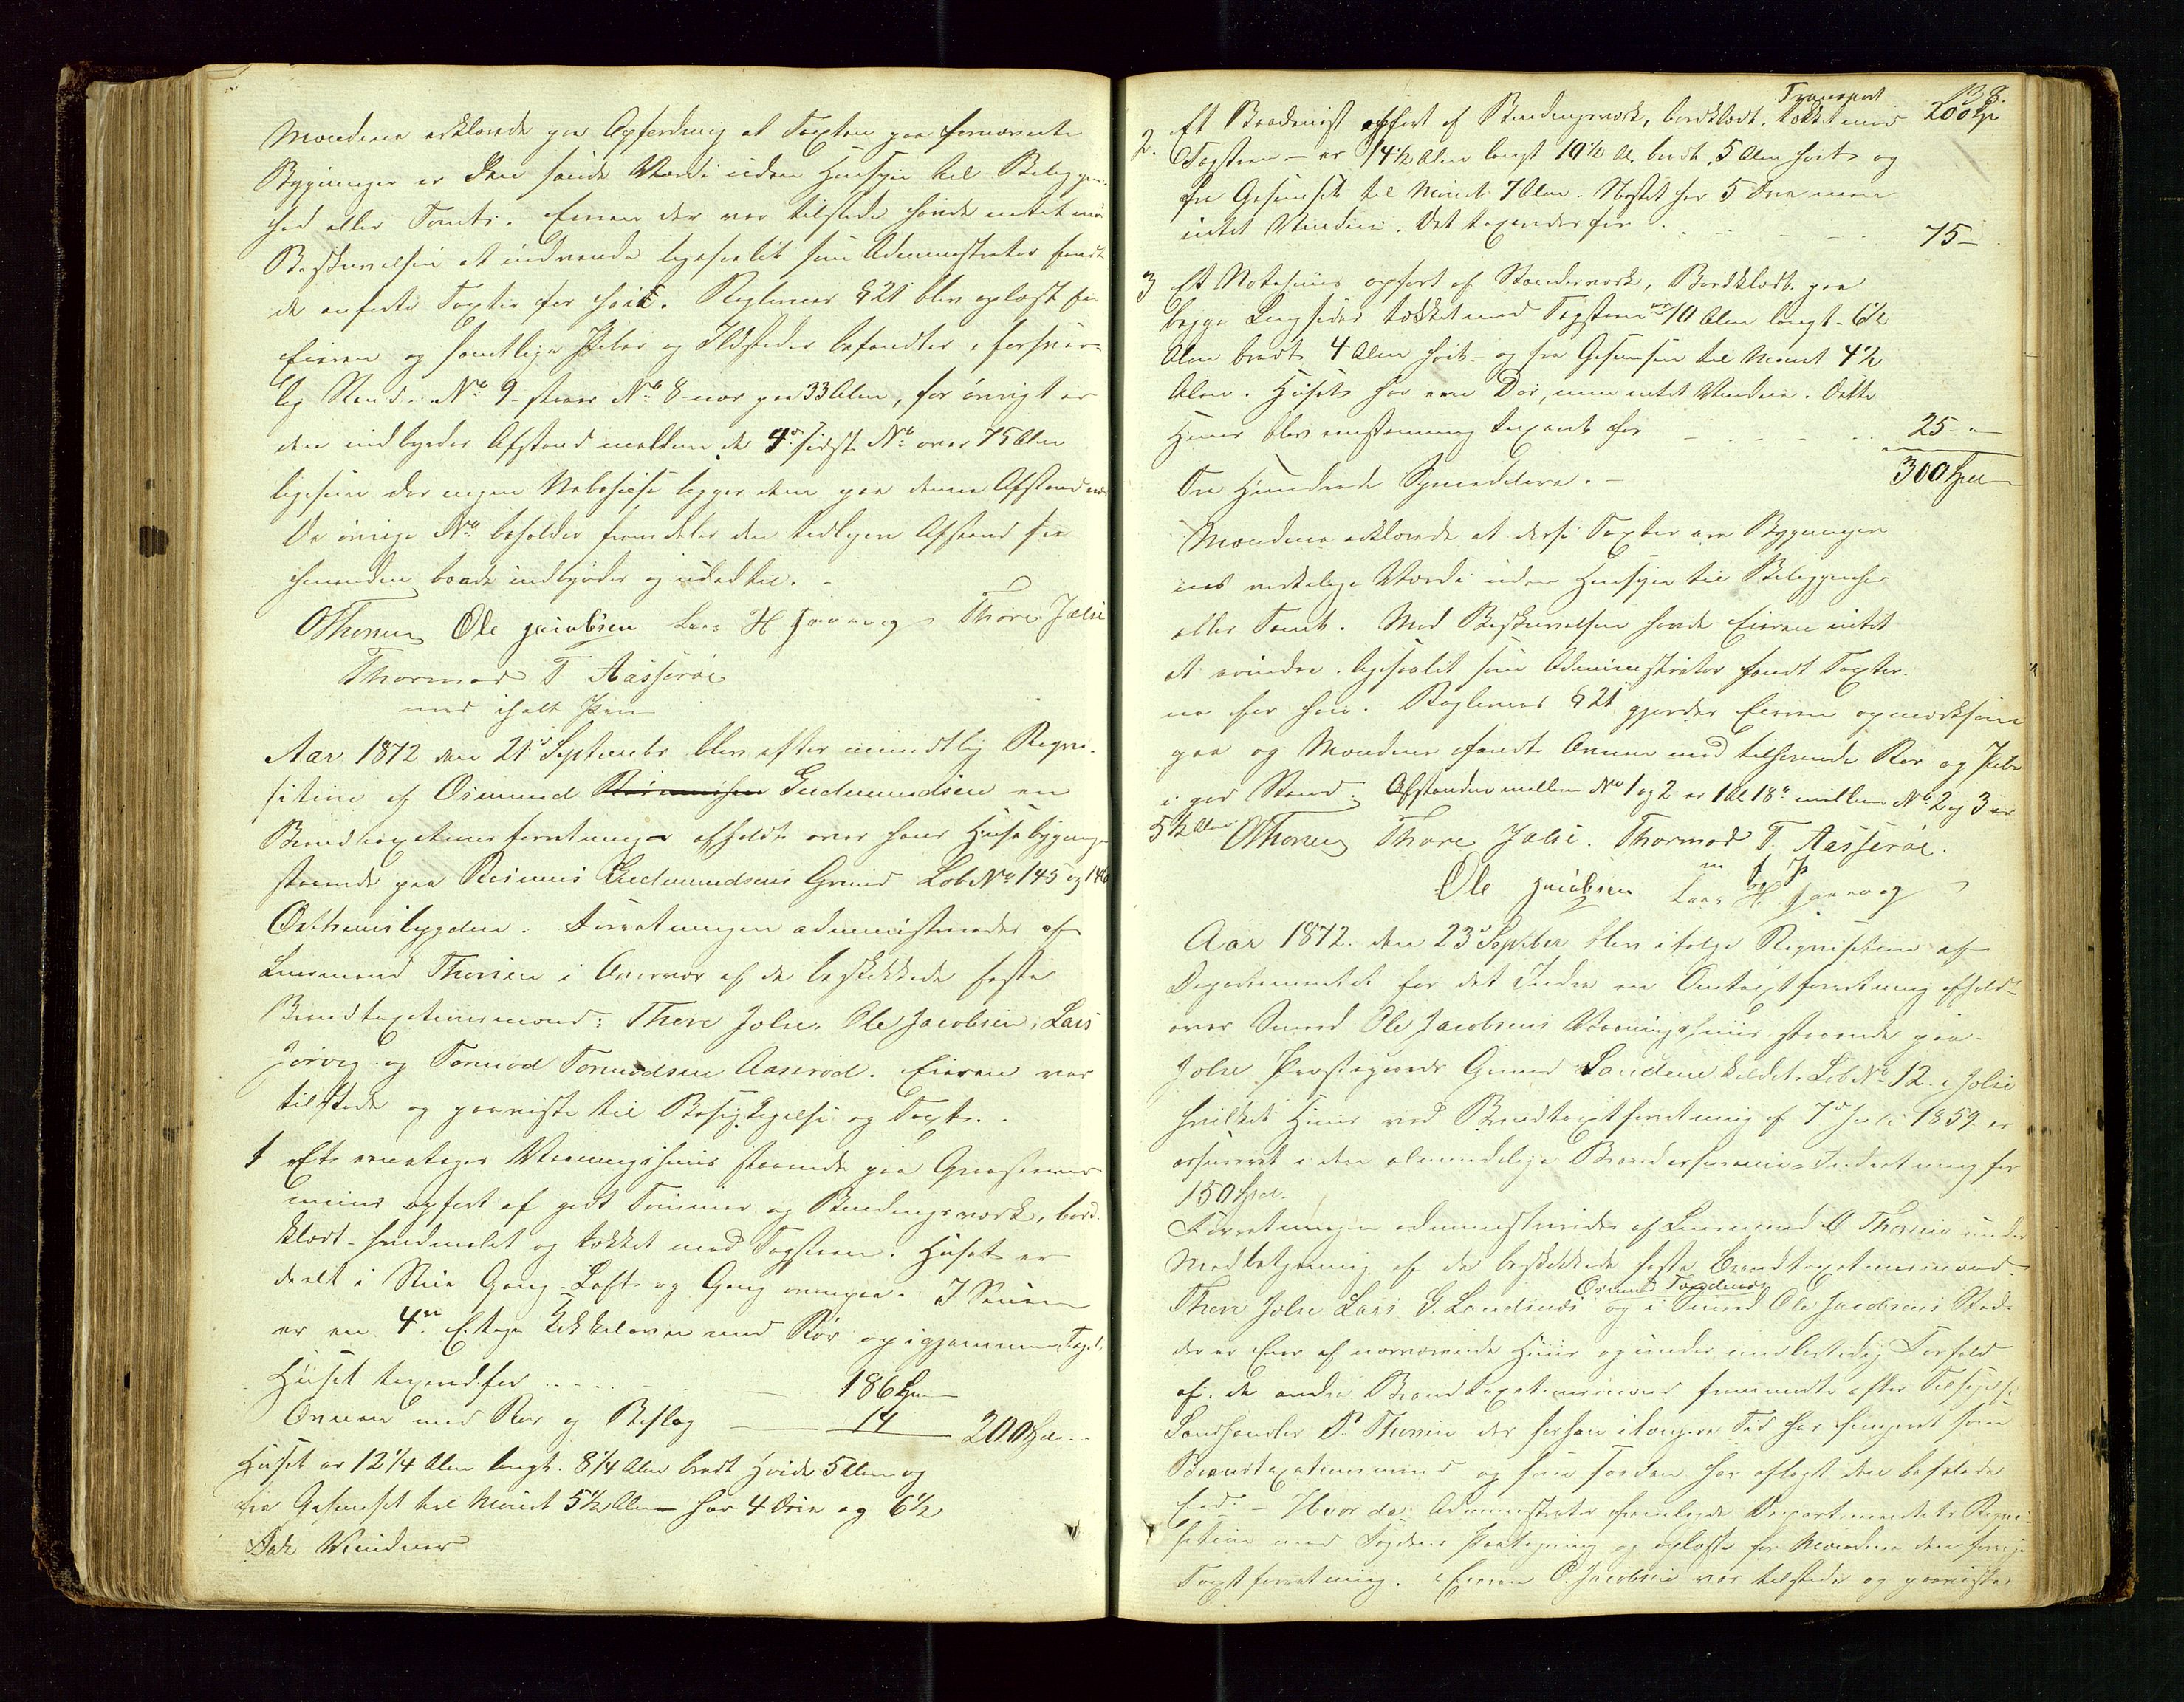 Mændene erklærede paa Opfordring at Taxten paa fornævnte
Bygninger er den sande Værdi uden Hensyn til Beliggen-
hed eller Tomt. Eieren der var tilstede havde intet mod
Beskrivelsen at indvende ligesaalidt som Administrator fandt
de anførte Taxter for høie. Reglernes § 21 blev oplæst for
Eieren og samtlige Piber og Ildsteder befandtes i forsvar-
lig Stand. No 9 staar No 8 nær paa 33 Alen, for øvrigt er
den indbyrdes Afstand mellem de 4 sidste No over 75 Alen
ligesom der ingen Nabohuse ligger dem paa denne Afstand nær
De øvrige No beholder fremdeles den tidligere Afstand fra
hinanden baade indbyrdes og udadtil.
OThorsen Ole Jacobsen Lars H Jørvig Thore Jølse
Thormod T Aasserøe
med iholt Pen
Aar 1872 den 21de September blev efter mundtlig Reqvi-
sition af Osmund Rasmussen Gudmundsen en
Brandtaxationsforretning afholdt over hans Husebygninger
staaende paa Rasmus Gudmundsens Grund Løb No 145 og 146
Østhusbygden. Forretningen administreredes af
Lensmand Thorsen i Overvær af de beskikkede faste
Brandtaxationsmænd: Thore Jølse, Ole Jacobsen, Lars
Jørvig og Tormod Tormodsen Aaserød. Eieren var
tilstede og paaviste til Besigtigelse og Taxt.
1 Et eenetages Vaaningshuus staaende paa Graasteens
muur opført af godt Tømmer og Bindingsværk, bord-
klædt hvidmalet og tækket med Tagsteen. Huset er
deelt i Stue Gang Loft og Gang ovenpaa. I Stuen
er en 4re Etages Kakkelovn med Rør op igjennem Taget
Huset taxeredes for 186 Spd
Ovnen med Rør og Beslag 14 200 Spd
Huset er 12 1/4 Alen langt 8 1/4 Alen bredt Høide 5 Alen og
fra Gesimset til Mønet 5 1/2 Alen har 4 Døre og 6 1/2
Fag Vinduer
138.
Transport 200 Sp
2. Et Baadenøst opført af Bindingsværk, bordklædt, tækket med
Tagsteen - er 14 1/2 Alen langt 10 1/2 Al. bredt, 5 Alen høit og
fra Gesimset til Mønet 7 Alen. Nøstet har 5 Døre men
intet Vindue. Det taxeredes for 75 -
3 Et Notehuus opført af Stændeværk, Bordklædt paa
begge Langsider tækket med Tagsteen er 10 Alen langt 6 1/2
Alen bredt 4 Alen høit og fra Gesimsen til Mønet 4 1/2
Alen. Huset har een Dør, men intet Vindue. Dette
Huus blev eenstemmig taxeret for 25 -
Tre Hundrede Speciedaler. 300 Spd
Mændene erklærede at disse Taxter ere Bygninger
nes virkelige Værdi uden Hensyn til Beliggenhed
eller Tomt. Mod Beskrivelsen havde Eieren intet
at erindre. Ligesaalidt som Administrator fandt Taxter
ne for høie. Reglernes § 21 gjordes Eieren opmærksom
paa og Mændene fandt Ovnen med tilhørende Rør og Pibe
i god Stand. Afstanden mellem No 1 og 2 er 1 Al 18" mellem No 2 og 3 er
5 1/2 Alen OThorsen Thore Jølse. Thormod T. Aasserøe.
m i P
Ole Jacobsen Lars H. Jørvig
Aar 1872 den 23de September blev ifølge Reqvisition af
Departementet for det Indre en Omtaxtforretning afholdt
over Smed Ole Jacobsens Vaaningshuus staaende paa
Jølse Præstegaards Grund Sandene kaldet, Løb No 12 i Jølse
hvilket Huus ved Brandtaxtforretning af 7de Juli 1859 er
assureret i den almindelige Brandassurance-Indretning for
150 Spd.
Forretningen administreredes af Lensmand O Thorsen under
Medbetjening af de beskikkede faste Brandtaxationsmænd
Thore Jølse Lars G. Landsnæs Osmund Tandenæs og i Smed Ole Jacobsens Sted
der er Eier af nærværende Huus og under midlertidig Forfald
af de andre Brandtaxationsmænd fremmødte efter Tilsigelse
Landhandler P. Thorsen der forhen i længere Tid har fungeret som
Brandtaxationsmand og som saadan har aflagt den befalede
Eed. - Hvorda Administrator fremlagde Departementets Reqvi-
sition med Fogdens Paategning og oplæste for Mændene den forrige
Taxtforretning. Eieren O. Jacobsen var tilstede og paaviste